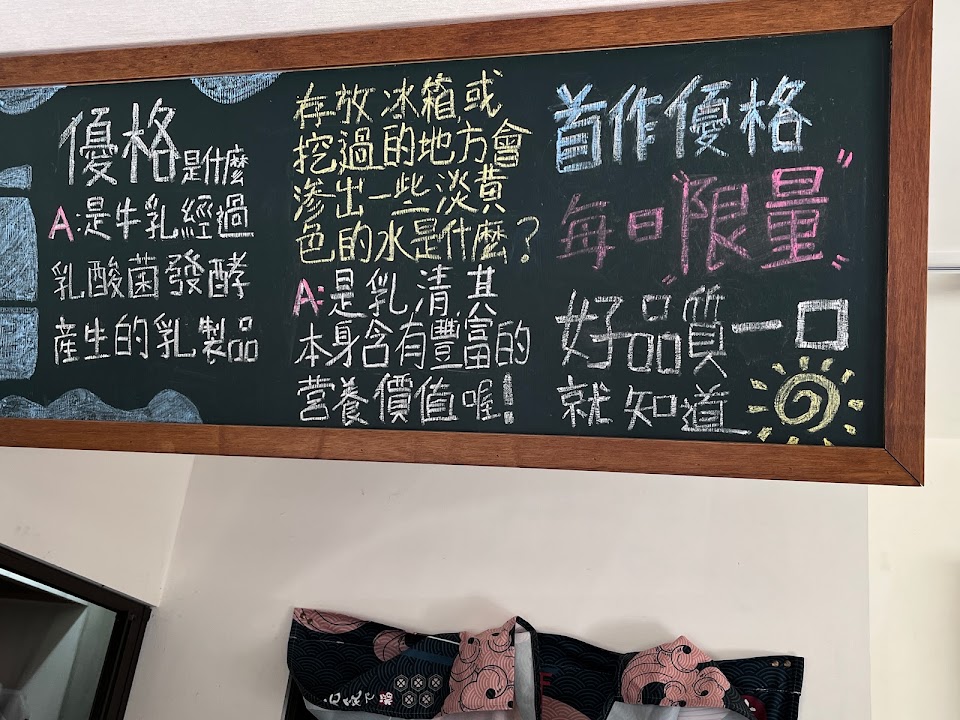 優格是什麼
A:是牛乳經過
乳酸菌發酵
產生的乳製品
存放冰箱,或
挖過的地方會
滲出一些淡黃
色的水是什麼?
A:是乳清,其
本身含有豐富的
營養價值喔!
首作優格
每日"限量"
好品質一口
就知道